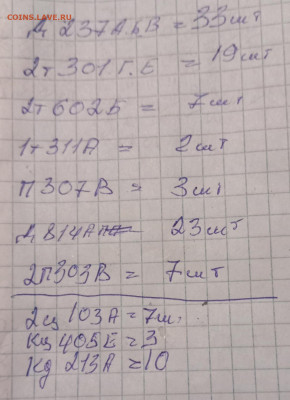 COINS.LAVE.RU
Д 237А,Б,В = 33шт
2т301Г.Е = 19шт
2т602Б = 7шт
1т311А = 2шт
П307В = 3шт
Д814А 23шт
2П303В = 7шт
2ц 103А = 7ш.
Кц 405Е = 3
Кд 213А = 10